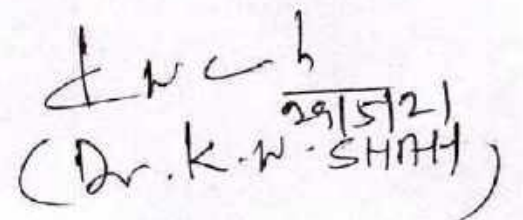 29/5/21
(Dr. K. N. SHAH)